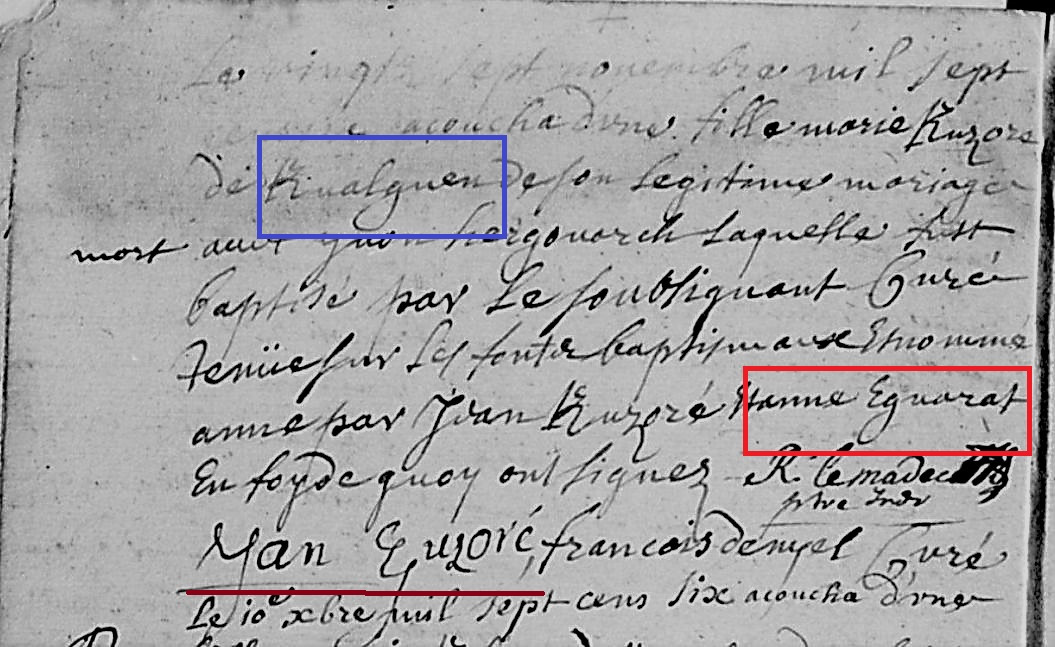 Le vingt sept novembre mil sept
acoucha d'vne fille marie Kuzoré
de Kualguen de son legitime mariage
mort avec yvon hergouarch Laquelle fust
baptisé par Le soubsignant Curé
Tenüe sur Les fonts baptismaux Et nommé
anne par Jvan Kuzoré Et anne Eguarat
En foy de quoy ont signez R. lemadec
ptre
Yan Kuzoré, francois denyel Curé
Le 10e xbre mil sept cens six acoucha d'vne